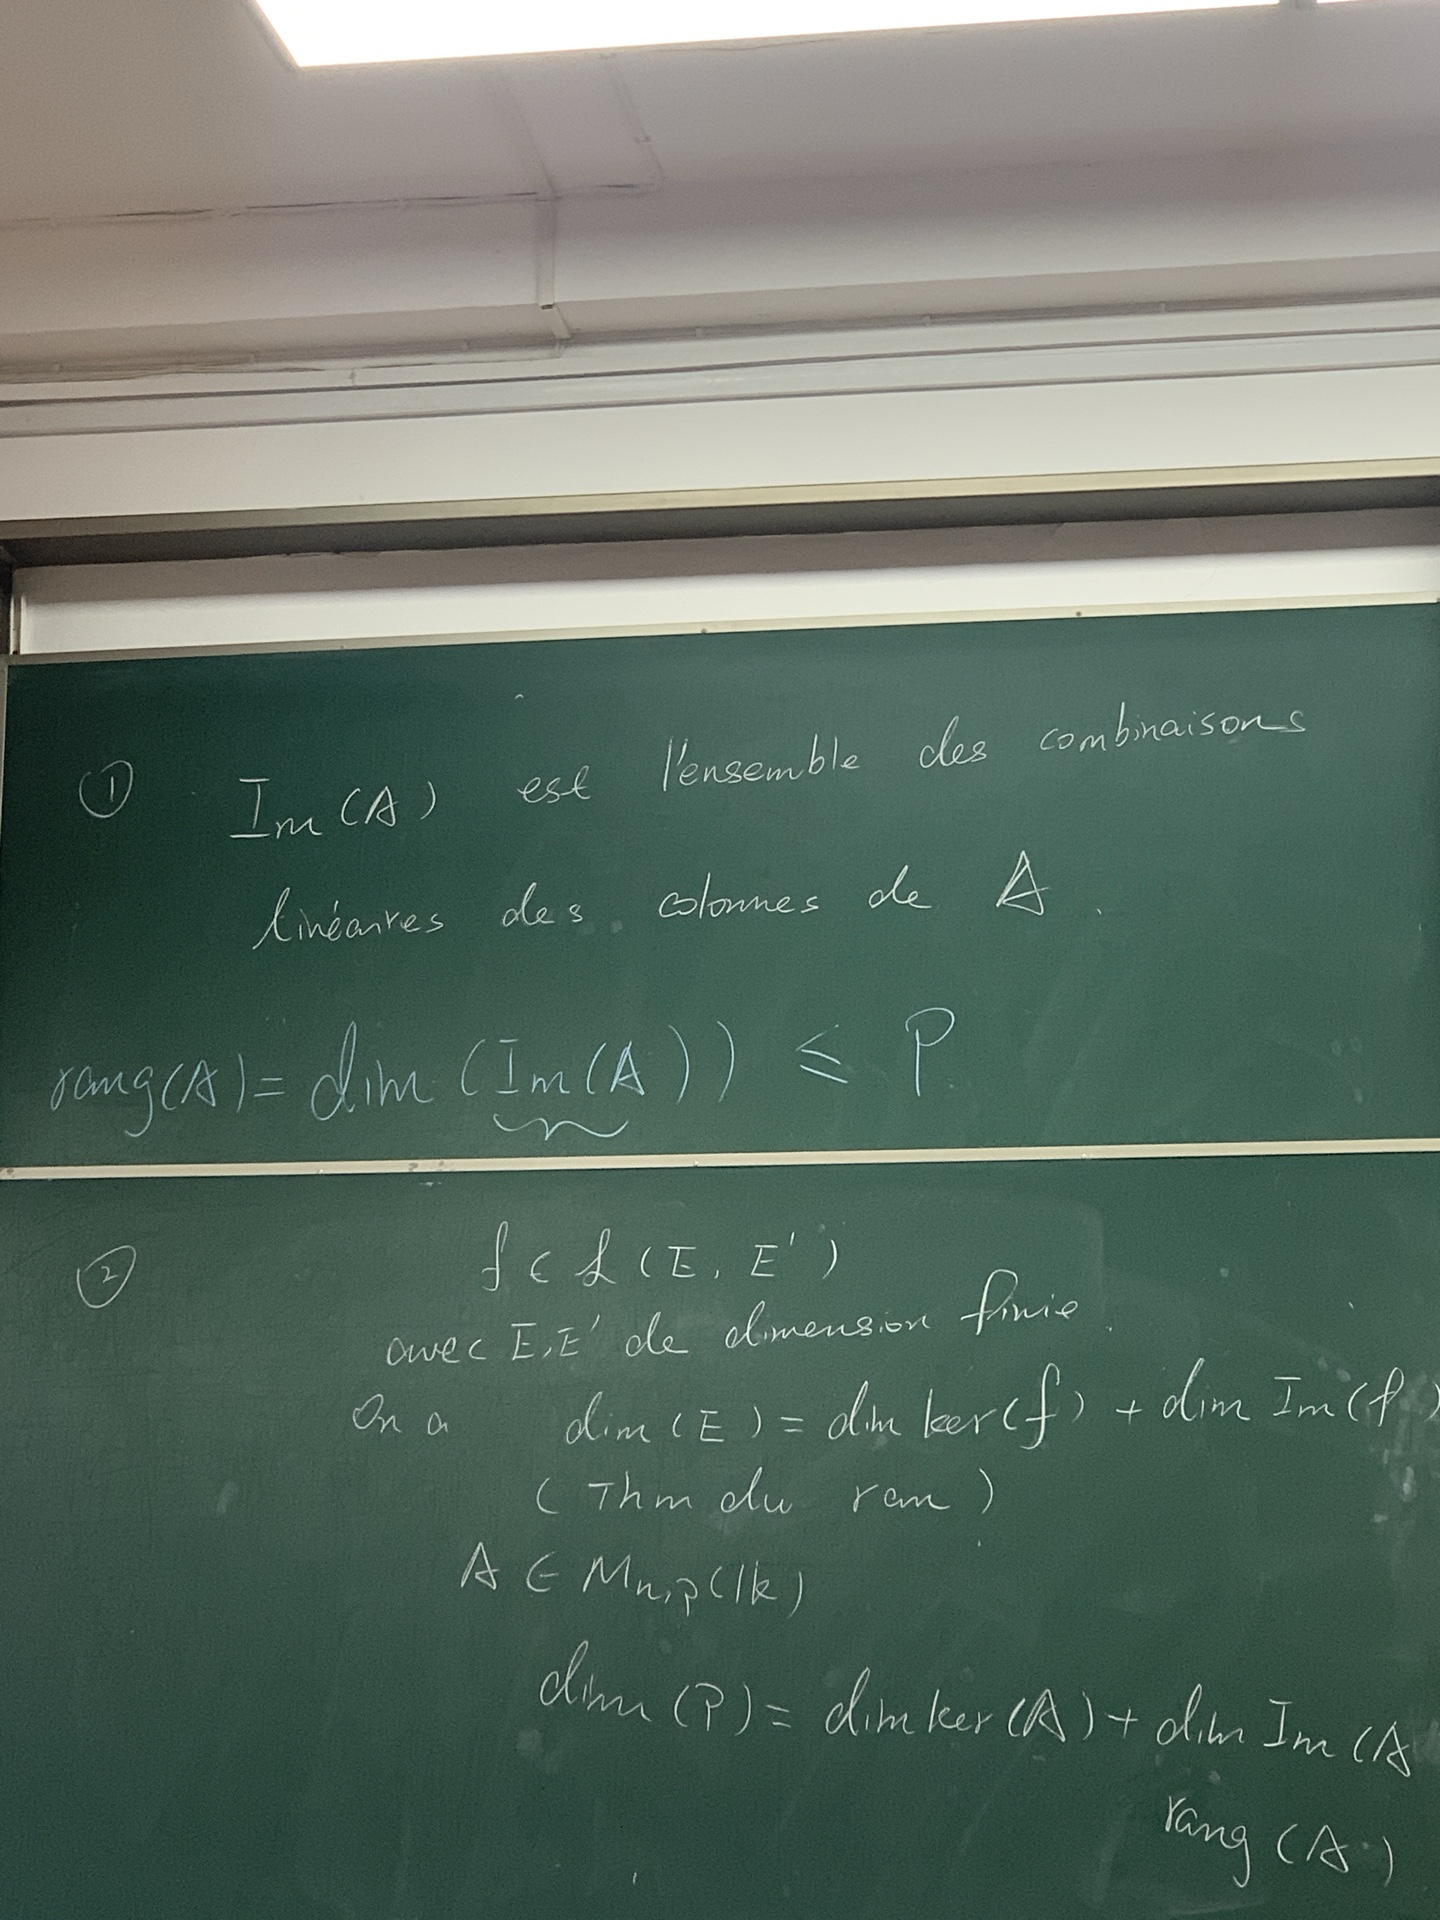 ① Im(A) est l'ensemble des combinaisons
linéaires des colonnes de A.
rang(A) = dim (Im(A)) ≤ P
② f ∈ L(E, E')
avec E, E' de dimension finie.
On a dim(E) = dim ker(f) + dim Im(f)
(Thm du ran)
A ∈ Mn,p(lk)
dim(P) = dim ker(A) + dim Im(A
rang(A)